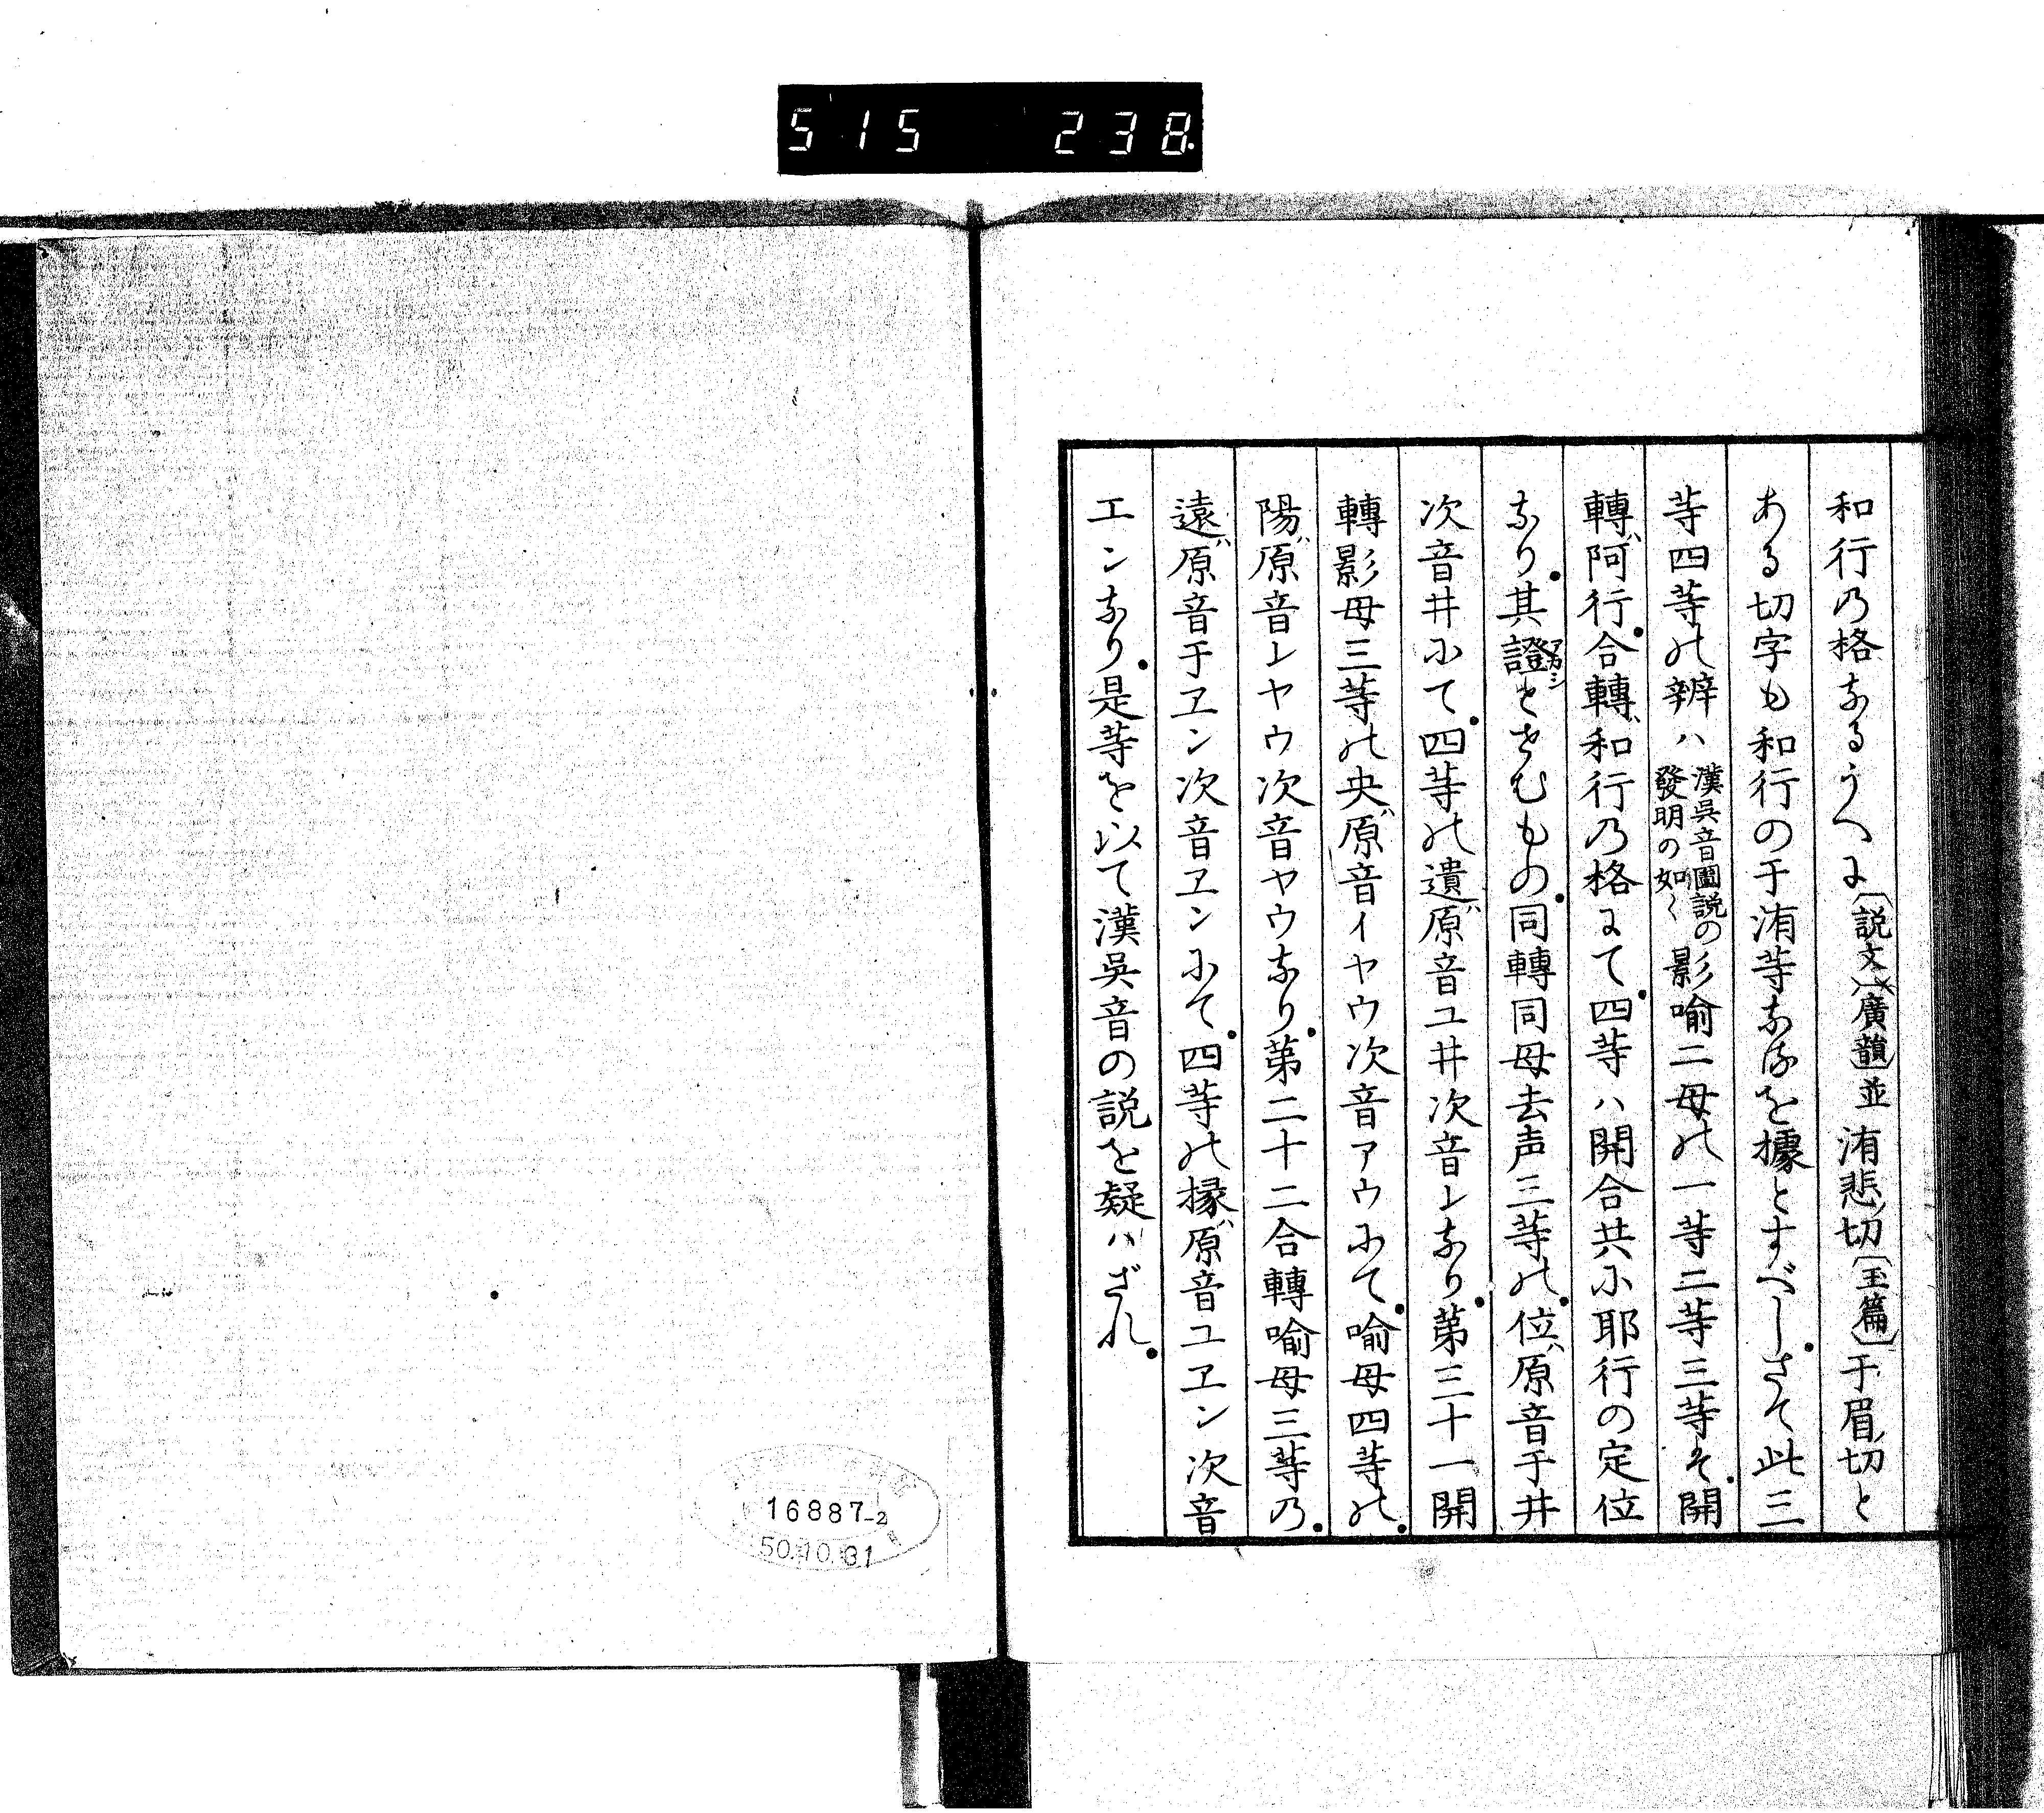 515 238
和行乃格なるうへに〔説文〕〔廣韻〕並洧悲切〔玉篇〕于眉切と
ある切字も和行の于洧等なるを據とすべしさて此三
等四等の辨ハ漢呉音圖説の發明の如く影喩二母の一等二等三等そ開
轉ハ阿行合轉ハ和行乃格にて四等ハ開合共小耶行の定位
なり其證アカシとせむもの同轉同母去声三等の位ハ原音于井
次音井にて四等の遺ハ原音ユ井次音レなり第三十一開
轉影母三等の央ハ原音イヤウ次音アウにて喩母四等の
陽ハ原音レヤウ次音ヤウなり第二十二合轉喩母三等乃
遠ハ原音于ヱン次音ヱンにて四等の縁ハ原音ユヱン次音
エンなり是等を以て漢呉音の説を疑ハざれ
16887-2
50.10.31